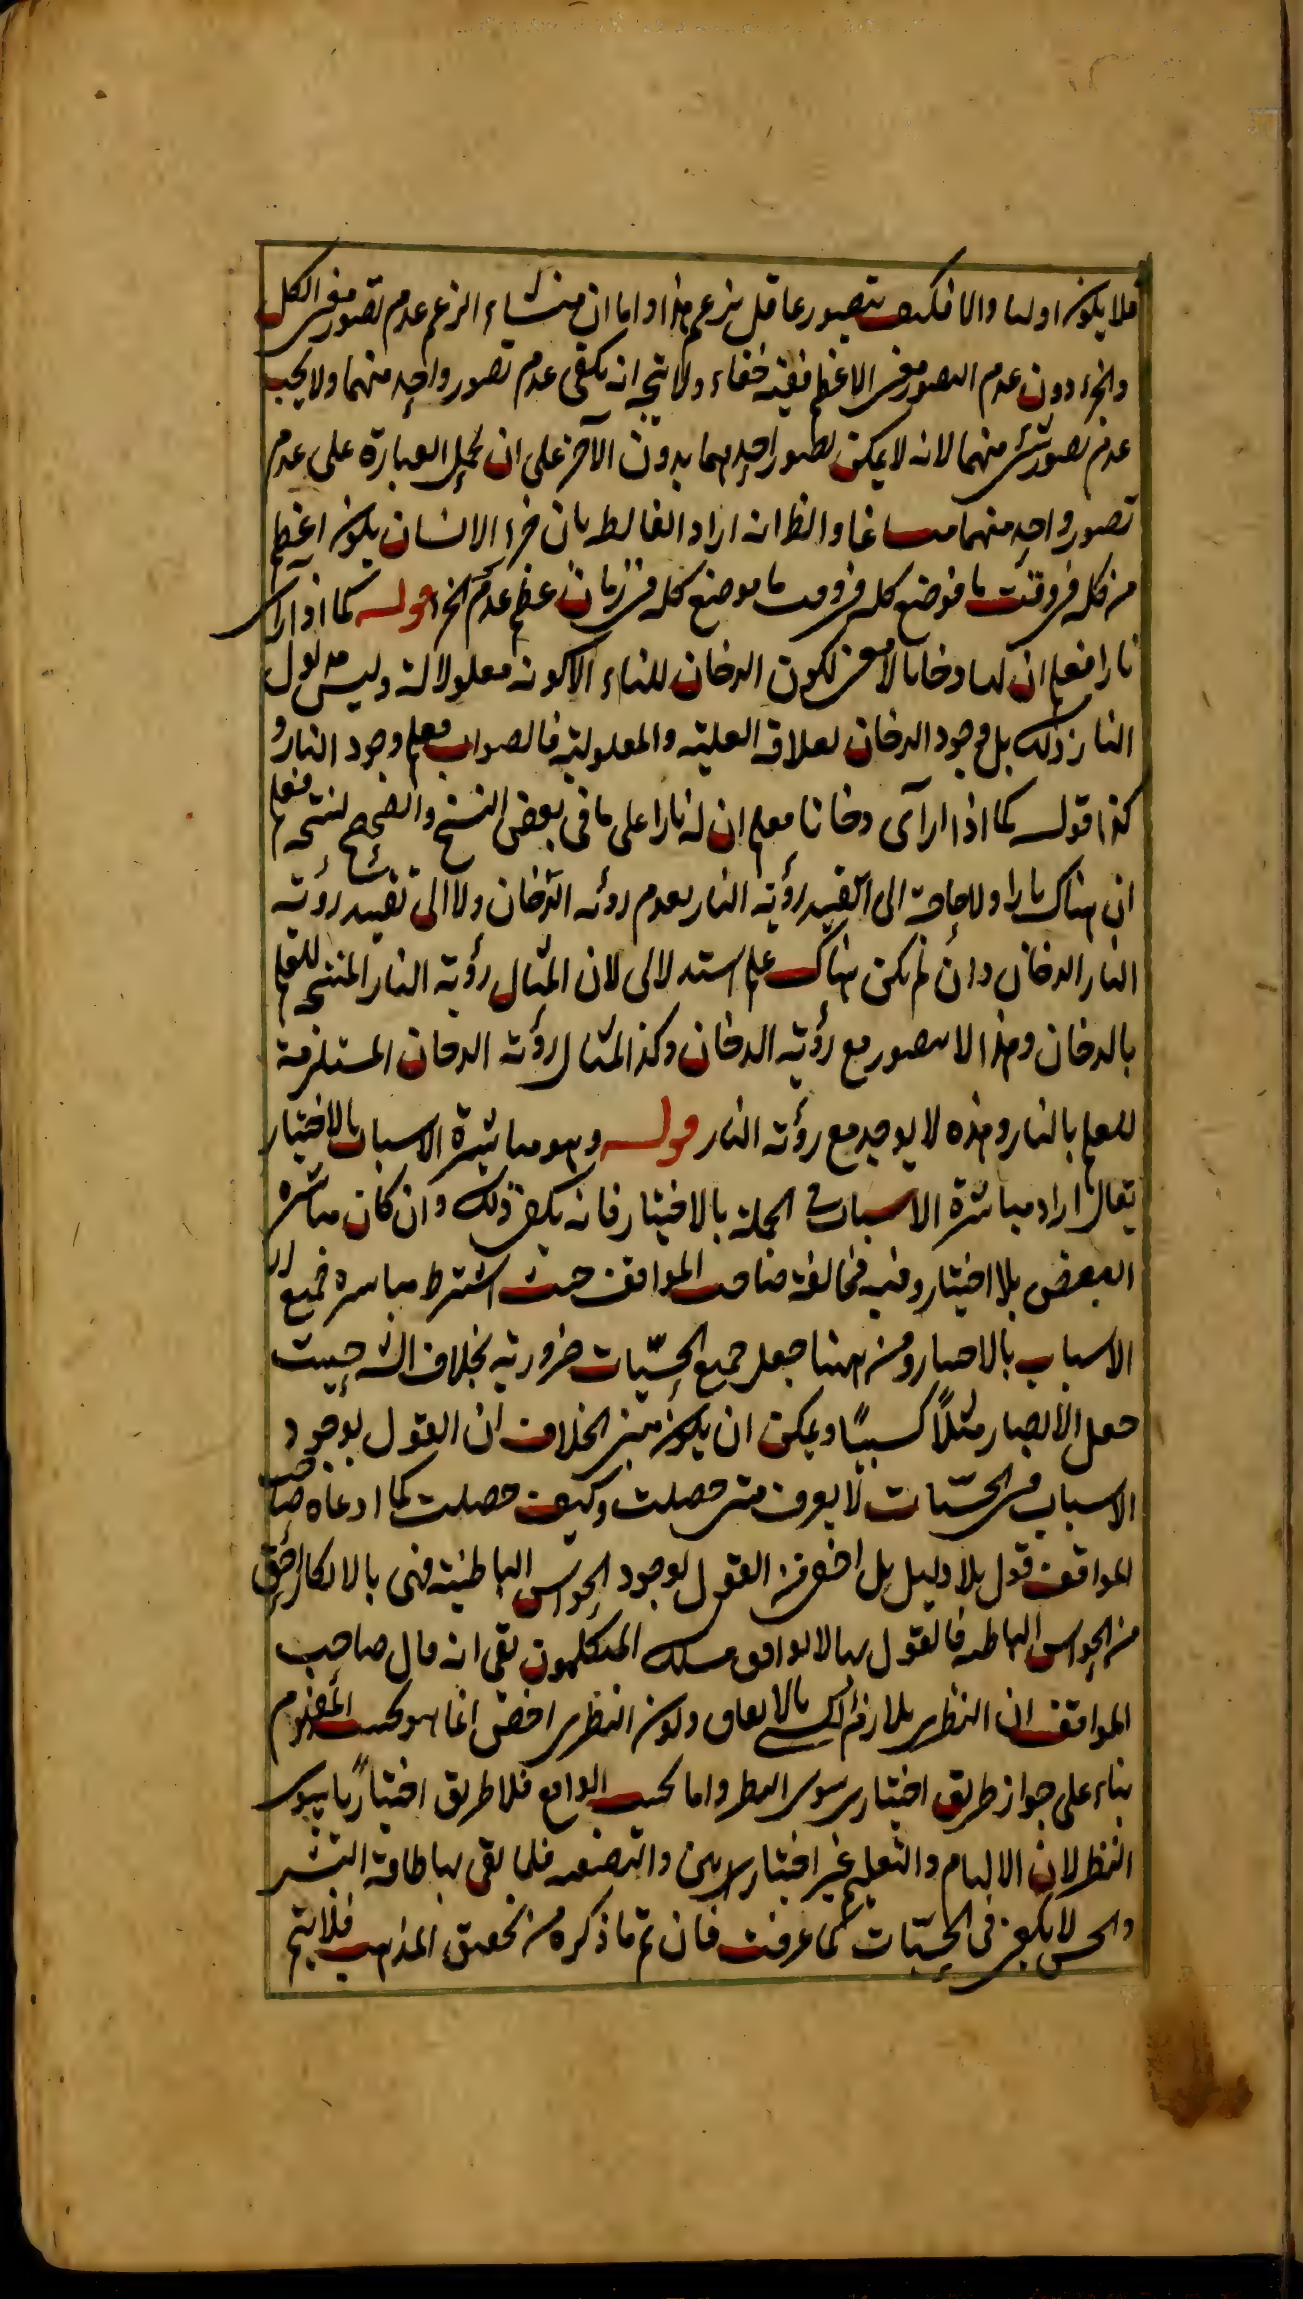 فلا يكون اوليا والا فكيف يتصور عاقل يزعم هذا واما ان منشاء الزعم عدم تصور معنى الكل
والجزء دون عدم التصور معنى الاعظم ففيه خفاء ولا يتجه انه يكفى عدم تصور واحد منهما ولا يجب
عدم تصور شئ منهما لانه لا يمكن تصور احدهما بدون الآخر على ان لحمل العبارة على عدم
تصور واحد منهما مساغا والظ انه اراد الغالط بان جزء الانسان يكون اعظم
من كله فى وقت ما فوضع كله فى وقت ما موضع كله فى زمان عظم عدم الجزء قوله كما اذا رأى
نارا فعلم ان لها دخانا لا معنى لكون الدخان للنار الا كونه معلولا له وليس مدلول
النار ذلك بل وجود الدخان لعلاقة العلية والمعلولية فالصواب فعلم وجود النار و
كذا قوله كما اذا رأى دخانا فعلم ان له نارا على ما فى بعض النسخ والصحيح لنتجه فعلم
ان هناك نارا ولا حاجة الى تقييد رؤية النار بعدم رؤية الدخان ولا الى تقييد رؤية
النار الدخان وان لم يكن هناك علم استدلالى لان المثال رؤية النار المنتجه للعلم
بالدخان وهذا لا يتصور مع رؤية الدخان وكذا المثال رؤية الدخان المستلزمة
للعلم بالنار وهذه لا يوجد مع رؤية النار قوله وهو مباشرة الاسباب بالاختيار
يقال اراد مباشرة الاسباب فى الجملة بالاختيار فانه يكفى ذلك وان كان مباشرة
البعض بلا اختيار وفيه مخالفة صاحب المواقف حيث اشترط مباشرة جميع
الاسباب بالاختيار ومن ههنا جعل جميع الحسّيات ضرورية بخلاف الشه حيث
جعل الابصار مثلاً كسبيًا ويمكن ان يكون مبنى الخلاف ان القول بوجود
الاسباب فى الحسّيات لا يعرف متى حصلت وكيف حصلت كما ادعاه صاحب
المواقف قول بلا دليل بل اخفى من القول بوجود الحواس الباطنة فهى بالانكار احق
من الحواس الباطنة فالقول بها لا يوافق مسلك المتكلمون بقى انه قال صاحب
المواقف ان النظرى يلازم الكسبى بالاتفاق وكون النظرى اخص انما هو بحسب المفهوم
بناء على جواز طريق اختيارى سوى النظر واما بحسب الواقع فلا طريق اختيارًيا سوى
النظر لان الالهام والتعليم غير اختياريين والتصفية قلما يفى بها طاقة البشر
والحس لا يكفى فى الحسّيات كما عرفت فان تم ما ذكره من تحقيق المذاهب فلا يتم